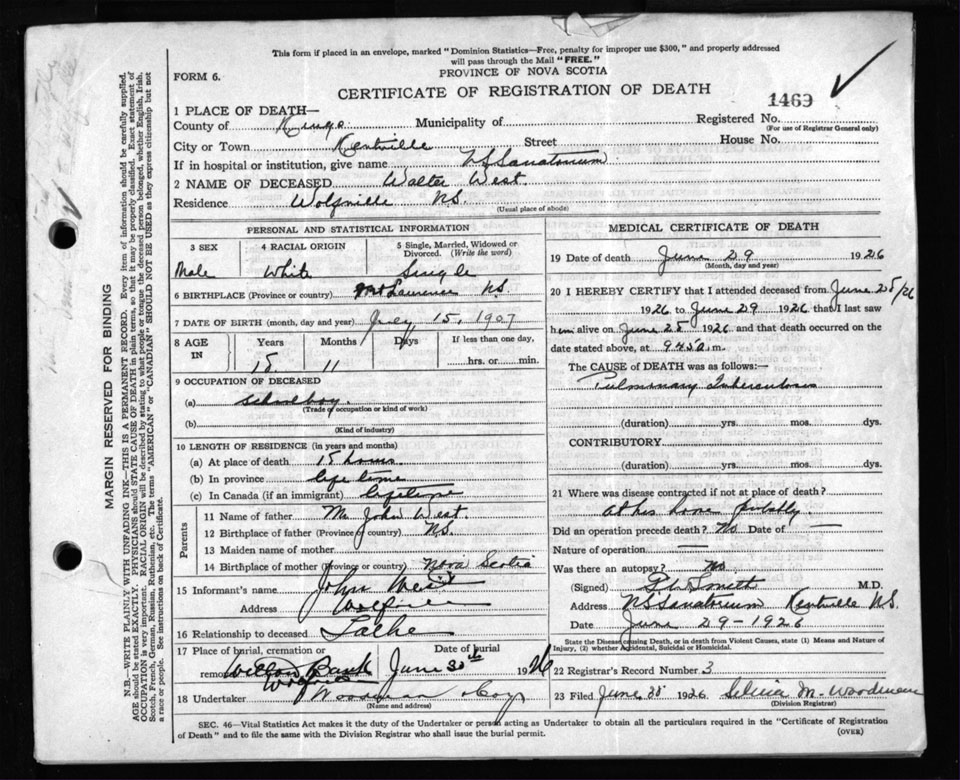 This form if placed in an envelope, marked "Dominion Statistics—Free, penalty for improper use $300," and properly addressed
will pass through the Mail "FREE."
FORM 6.
PROVINCE OF NOVA SCOTIA
CERTIFICATE OF REGISTRATION OF DEATH
1469
1 PLACE OF DEATH—
Registered No.
(For use of Registrar General only)
County of Kings Municipality of
City or Town Kentville Street House No.
If in hospital or institution, give name NS Sanatorium
2 NAME OF DECEASED Walter West.
Residence Wolfville NS. (Usual place of abode)
PERSONAL AND STATISTICAL INFORMATION
3 SEX 4 RACIAL ORIGIN 5 Single, Married, Widowed or Divorced. (Write the word)
Male White Single
6 BIRTHPLACE (Province or country) NS.
7 DATE OF BIRTH (month, day and year) July 15, 1907
8 AGE IN Years Months Days If less than one day,
18 11 hrs. or min.
9 OCCUPATION OF DECEASED
(a) Schoolboy.
(Trade or occupation or kind of work)
(b)
(Kind of industry)
10 LENGTH OF RESIDENCE (in years and months)
(a) At place of death 15 hours
(b) In province life time
(c) In Canada (if an immigrant) Lifetime
Parents
11 Name of father Mr John West.
12 Birthplace of father (Province or country) NS.
13 Maiden name of mother
14 Birthplace of mother (Province or country) Nova Scotia
15 Informant's name John West
Address Wolfville
16 Relationship to deceased Father
17 Place of burial, cremation or removal Willow Bank Date of burial June 30th 1926
18 Undertaker
(Name and address)
MEDICAL CERTIFICATE OF DEATH
19 Date of death June 29 1926
(Month, day and year)
20 I HEREBY CERTIFY that I attended deceased from June 28/26
1926 to June 29 1926 that I last saw
him alive on June 28 1926 and that death occurred on the
date stated above, at 9.45 a.m.
The CAUSE of DEATH was as follows:—
Pulmonary Tuberculosis
(duration) yrs. mos. dys.
CONTRIBUTORY
(duration) yrs. mos. dys.
21 Where was disease contracted if not at place of death?
at his home
Did an operation precede death? No Date of —
Nature of operation —
Was there an autopsy? No
(Signed) M.D.
Address NS Sanatorium Kentville N.S.
Date June 29 - 1926
State the Disease causing Death, or in death from Violent Causes, state (1) Means and Nature of
Injury, (2) whether Accidental, Suicidal or Homicidal.
22 Registrar's Record Number 3
23 Filed June 1926. M. Woodman
(Division Registrar)
SEC. 46—Vital Statistics Act makes it the duty of the Undertaker or person acting as Undertaker to obtain all the particulars required in the "Certificate of Registration
of Death" and to file the same with the Division Registrar who shall issue the burial permit.
(OVER)
MARGIN RESERVED FOR BINDING
N.B.—WRITE PLAINLY WITH UNFADING INK—THIS IS A PERMANENT RECORD. Every item of information should be carefully supplied.
AGE should be stated EXACTLY. PHYSICIANS should STATE CAUSE OF DEATH in plain terms, so that it may be properly classified. Exact statement of
OCCUPATION is very important. RACIAL ORIGIN will be described by stating to what people or tongue the deceased person belonged, whether English, Irish,
Scotch, French, German, Russian, Ruthenian, etc. The terms "AMERICAN" or "CANADIAN" SHOULD NOT BE USED as they express citizenship but not
a race or people. See instructions on back of Certificate.